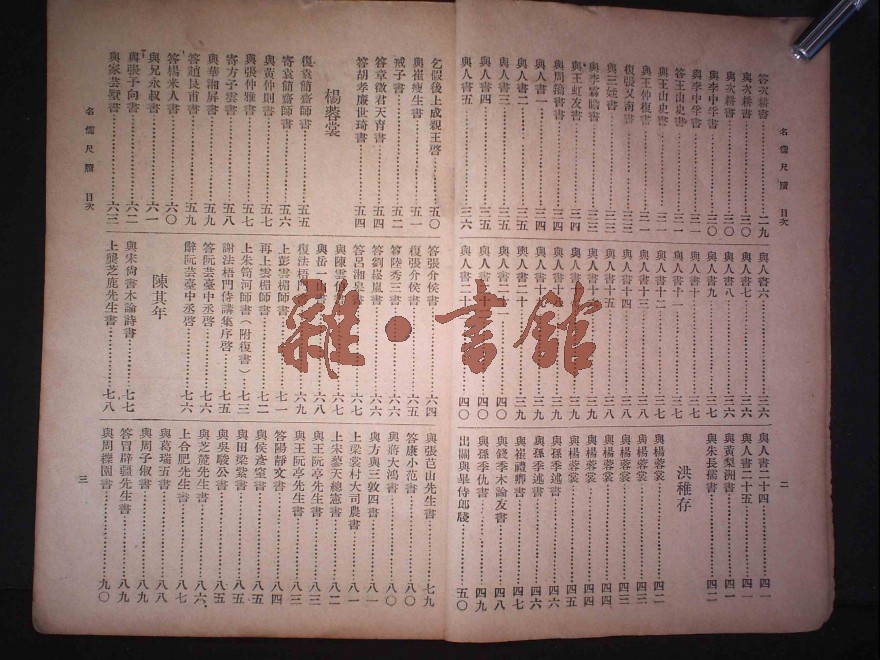 名儒尺牘 目次
二
答次耕書……二九
與次耕書……三〇
與李中孚書……三〇
與李中孚書……三一
答王山史書……三一
與王山史書……三一
與王仲復書……三一
復張又南書……三二
與三姪書……三三
與李霖瞻書……三三
與王虹友書……三三
與周籀書書……三四
與人書一……三四
與人書二……三五
與人書三……三五
與人書四……三五
與人書五……三六
與人書六……三六
與人書七……三六
與人書八……三六
與人書九……三七
與人書十……三七
與人書十一……三七
與人書十二……三七
與人書十三……三八
與人書十四……三八
與人書二十……三九
與人書二十四……四一
與人書二十五……四一
與黃梨洲書……四一
與朱長孺書……四二
洪稚存
與楊蓉裳……四二
與楊蓉裳……四三
與楊蓉裳……四三
與楊蓉裳……四四
與楊蓉裳……四四
與楊蓉裳……四五
與孫季逑書……四六
與孫季逑書……四六
與崔禮卿書……四七
與錢季木論友書……四八
與孫季仇書……四九
出關與畢侍郎牋……五〇
乞假後上成親王啓……五〇
與崔瘦生書……五一
戒子書……五二
答章徵君天育書……五四
答胡孝廉世琦書……五四
楊蓉裳
復袁簡齋師書……五五
寄袁簡齋師書……五六
與黃仲則書……五七
與張仲雅書……五七
寄方子雲書……五八
與華湘屏書……五九
答趙艮甫書……五九
答楊米人書……六〇
與兄永叔書……六一
與張子向書……六二
與家芸墅書……六三
答張介侯書……六四
復張介侯書……六五
答陸秀三書……六六
答劉嵩嵐書……六六
答呂湘皋書……六七
與陳雲伯書……六七
與岳一山書……六八
復法梧門書……六九
上彭雲楣師書……七一
再上雲楣師書……七二
上朱笥河師書(附復書)……七三
謝法梧門侍講集序啓……七五
答阮芸臺中丞啓……七六
辭阮芸臺中丞啓……七六
陳其年
與宋尙書木論詩書……七七
上龔芝鹿先生書……七八
與張芑山先生書……七九
答康小范書……八〇
與蔣大鴻書……八〇
與方與三敦四書……八一
上梁棠村大司農書……八一
上宋蓼天總憲書……八二
與王阮亭先生書……八三
與王阮亭先生書……八三
答陽靜文書……八四
與侯彥室書……八五
與田梁紫書……八五
與吳駿公書……八五
與芝麓先生書……八六
上合肥先生書……八七
與葛瑞五書……八八
與周子俶書……八八
答冒辟疆先生書……八九
與周櫟園書……九〇
名儒尺牘 目次
三
雜·書館